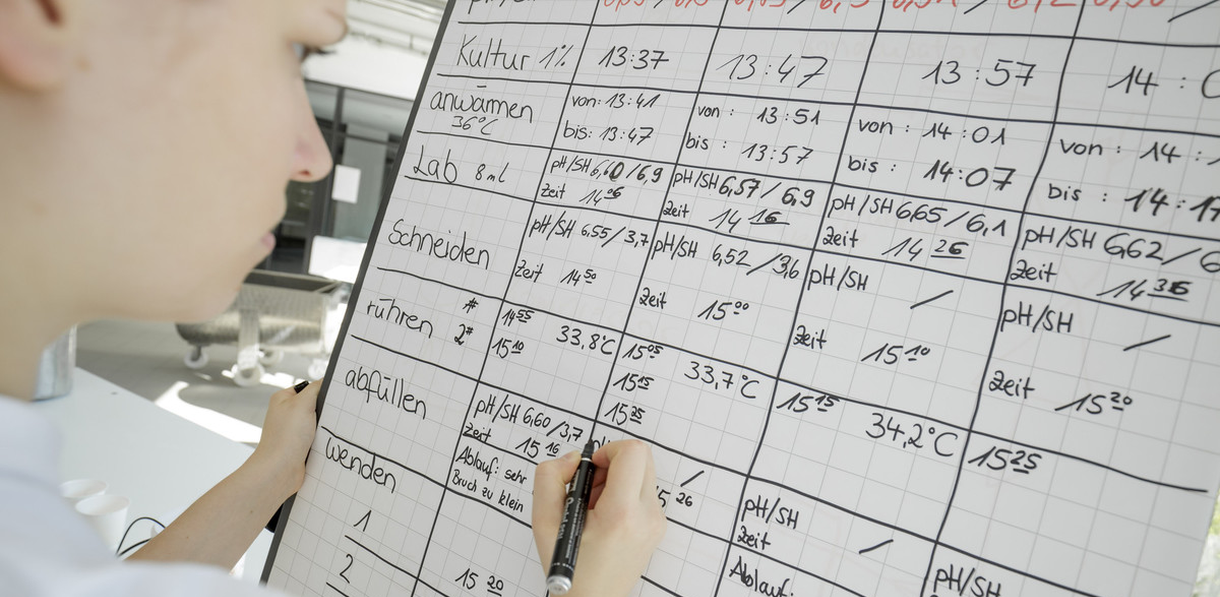 Kultur 1% 13:37 13:47 13:57 14:0
anwärmen 36°C von: 13:41 von: 13:51 von: 14:01 von: 14:
bis: 13:47 bis: 13:57 bis: 14:07 bis: 14:17
Lab 8ml pH/SH 6,60/6,9 pH/SH 6,57/6,9 pH/SH 6,65/6,1 pH/SH 6,62/6
Zeit 14 06 Zeit 14 16 Zeit 14 26 Zeit 14 36
Schneiden pH/SH 6,55/3,7 pH/SH 6,52/3,6 pH/SH / pH/SH /
Zeit 14 50 Zeit 15 00 Zeit 15 10 Zeit 15 20
rühren 14 55 33,8°C 15 05 33,7°C 15 15 34,2°C 15 25
2# 15 10 15 15
15 25
abfüllen pH/SH 6,60/3,7 / pH/SH / pH/SH
Zeit 15 16 5 26 Zeit
Ablauf: sehr Ablauf:
Bruch zu klein
wenden
1 15 20
2